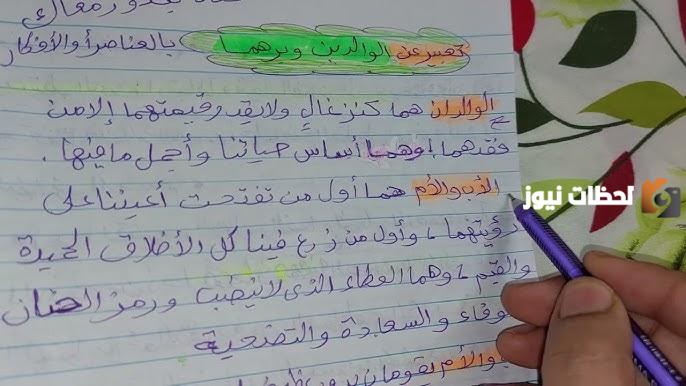 تعبير عن الوالدين وبرهما بالعناصر والأفكار
الوالدان هما كنز غالٍ ولا يقدر قيمتهما إلا من
فقدهما، وهما أساس حياتنا وأجمل ما فيها.
الأب والأم هما أول من تفتحت أعيننا على
رؤيتهما، وأول من زرع فينا كل الأخلاق الحميدة
والقيم، وهما العطاء الذي لا ينضب ورمز الحنان
والوفاء والسعادة والتضحية
والأم يقومان بدور
لحظات نيوز